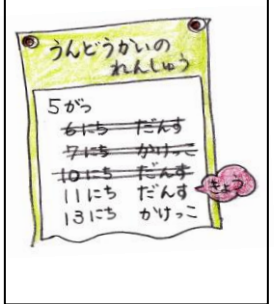 うんどうかいの
れんしゅう
5がつ
6にち だんす
7にち かけっこ
10にち だんす
11にち だんす
きょう
13にち かけっこ